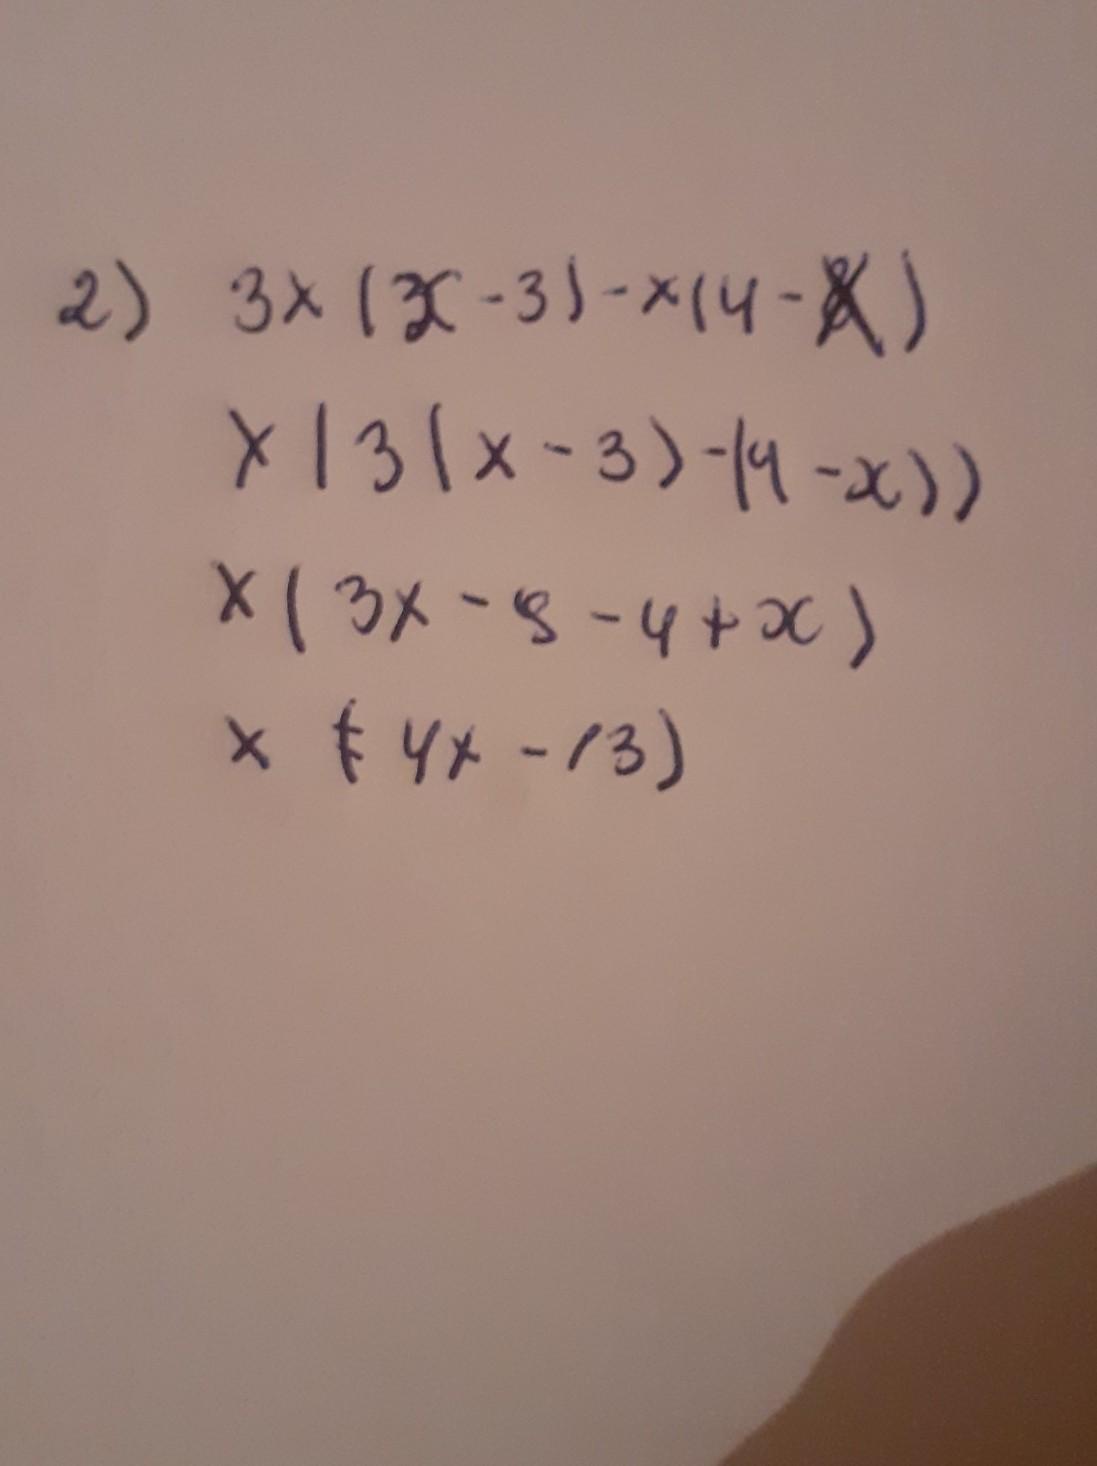 2) 3x(x-3)-x(4-x)
x(3(x-3)-(4-x))
x(3x-9-4+x)
x(4x-13)